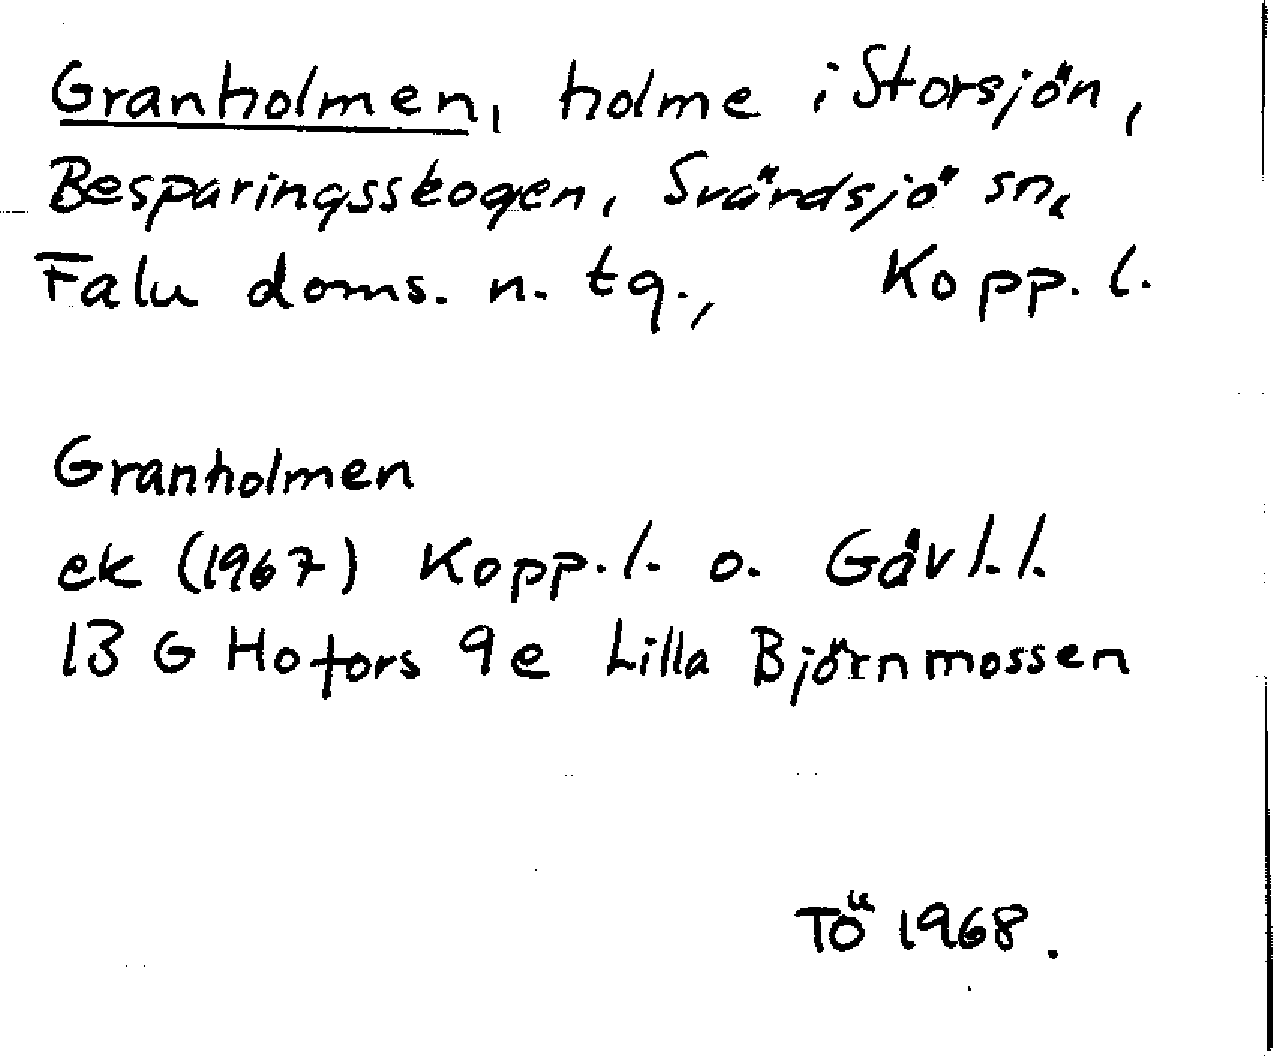 Granholmen, holme i Storsjön,
Besparingsskogen, Svärdsjö sn,
Falu doms. n. tg., Kopp. l.
Granholmen
ek (1967) Kopp. l. o. Gävl. l.
13 G Hofors 9e Lilla Björnmossen
TÖ 1968.